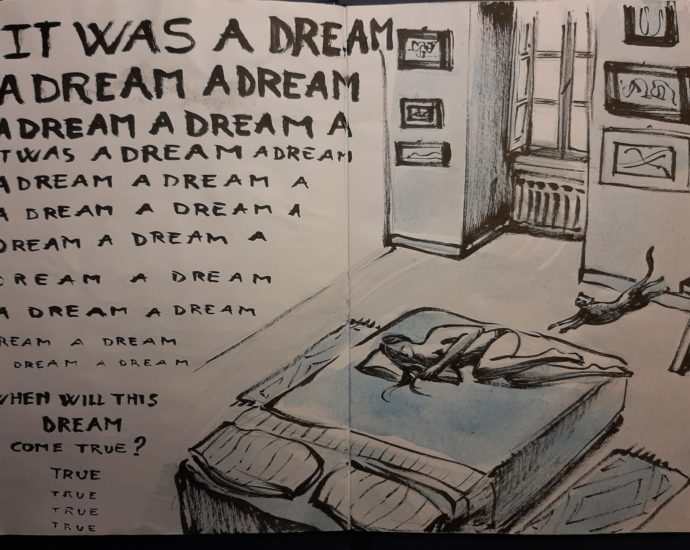 IT WAS A DREAM
A DREAM A DREAM
A DREAM A DREAM A
IT WAS A DREAM A DREAM
A DREAM A DREAM A
A DREAM A DREAM A
DREAM A DREAM A
DREAM A DREAM
A DREAM A DREAM
DREAM A DREAM
DREAM A DREAM
WHEN WILL THIS
DREAM
COME TRUE?
TRUE
TRUE
TRUE
TRUE